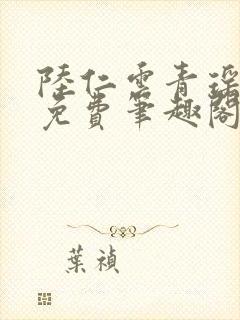 陸仁雲青瑶
免費筆趣閣
葉禎